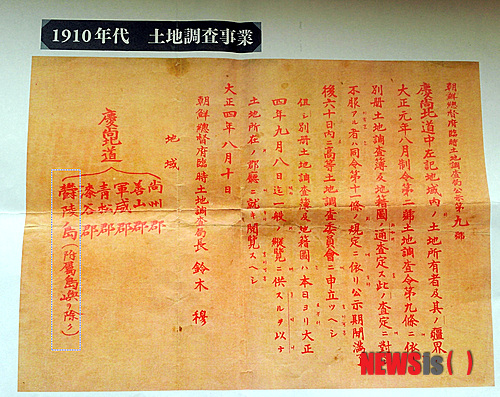 1910年代 土地調査事業
朝鮮總督府臨時土地調査局公示第九號
慶尚北道中左記地域内ノ土地所有者及其ノ疆界
大正元年八月制令第二號土地調査令第九條ニ依
別冊土地調査簿及地籍圖ノ通査定ス此ノ査定ニ對
不服アル者ハ同令第十一條ノ規定ニ依リ公示期間滿了
後六十日内ニ高等土地調査委員會ニ申立ツヘシ
但シ別冊土地調査簿及地籍圖ハ本日ヨリ大正
四年九月八日迄一般ノ縱覽ニ供スルヲ以テ
土地所在ノ郡廳ニ就キ閲覧スヘシ
大正四年八月十日
朝鮮總督府臨時土地調査局長 鈴木 穆
地域
慶尚北道
尚州郡
善山郡
軍威郡
青松郡
漆谷郡
欝陵島(附屬島嶼ヲ除ク)
NEWSis( )